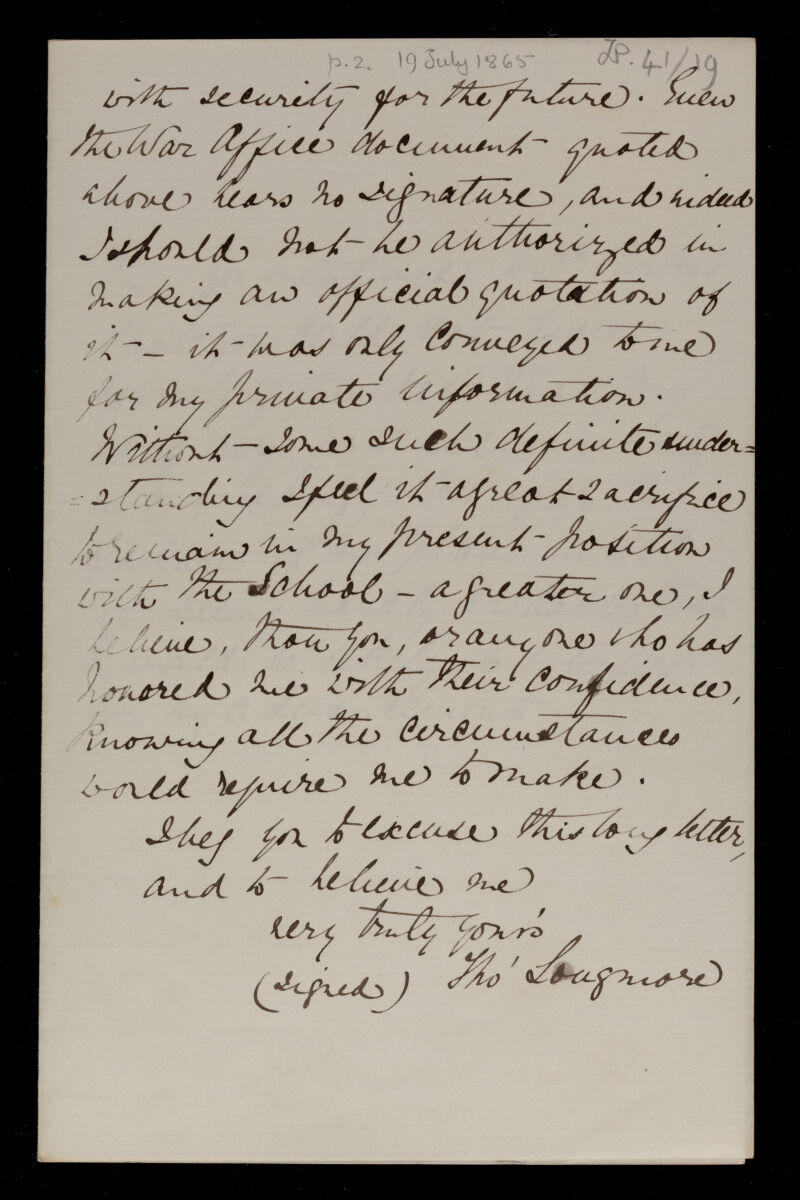 p.2. 19 July 1865 LP. 41/19
with security for the future. Even
the War Office document quoted
above bears no signature, and indeed
I should not be authorized in
making an official quotation of
it – it was only conveyed to me
for my private information.
Without – some such definite under=
=standing I feel it a great sacrifice
to remain in my present position
with the School – a greater one, I
believe, than you, or any one who has
honored me with their confidence,
knowing all the circumstances
would require me to make.
I beg you to excuse this long letter,
and to believe me
very truly yours
(signed) Tho' Longmore